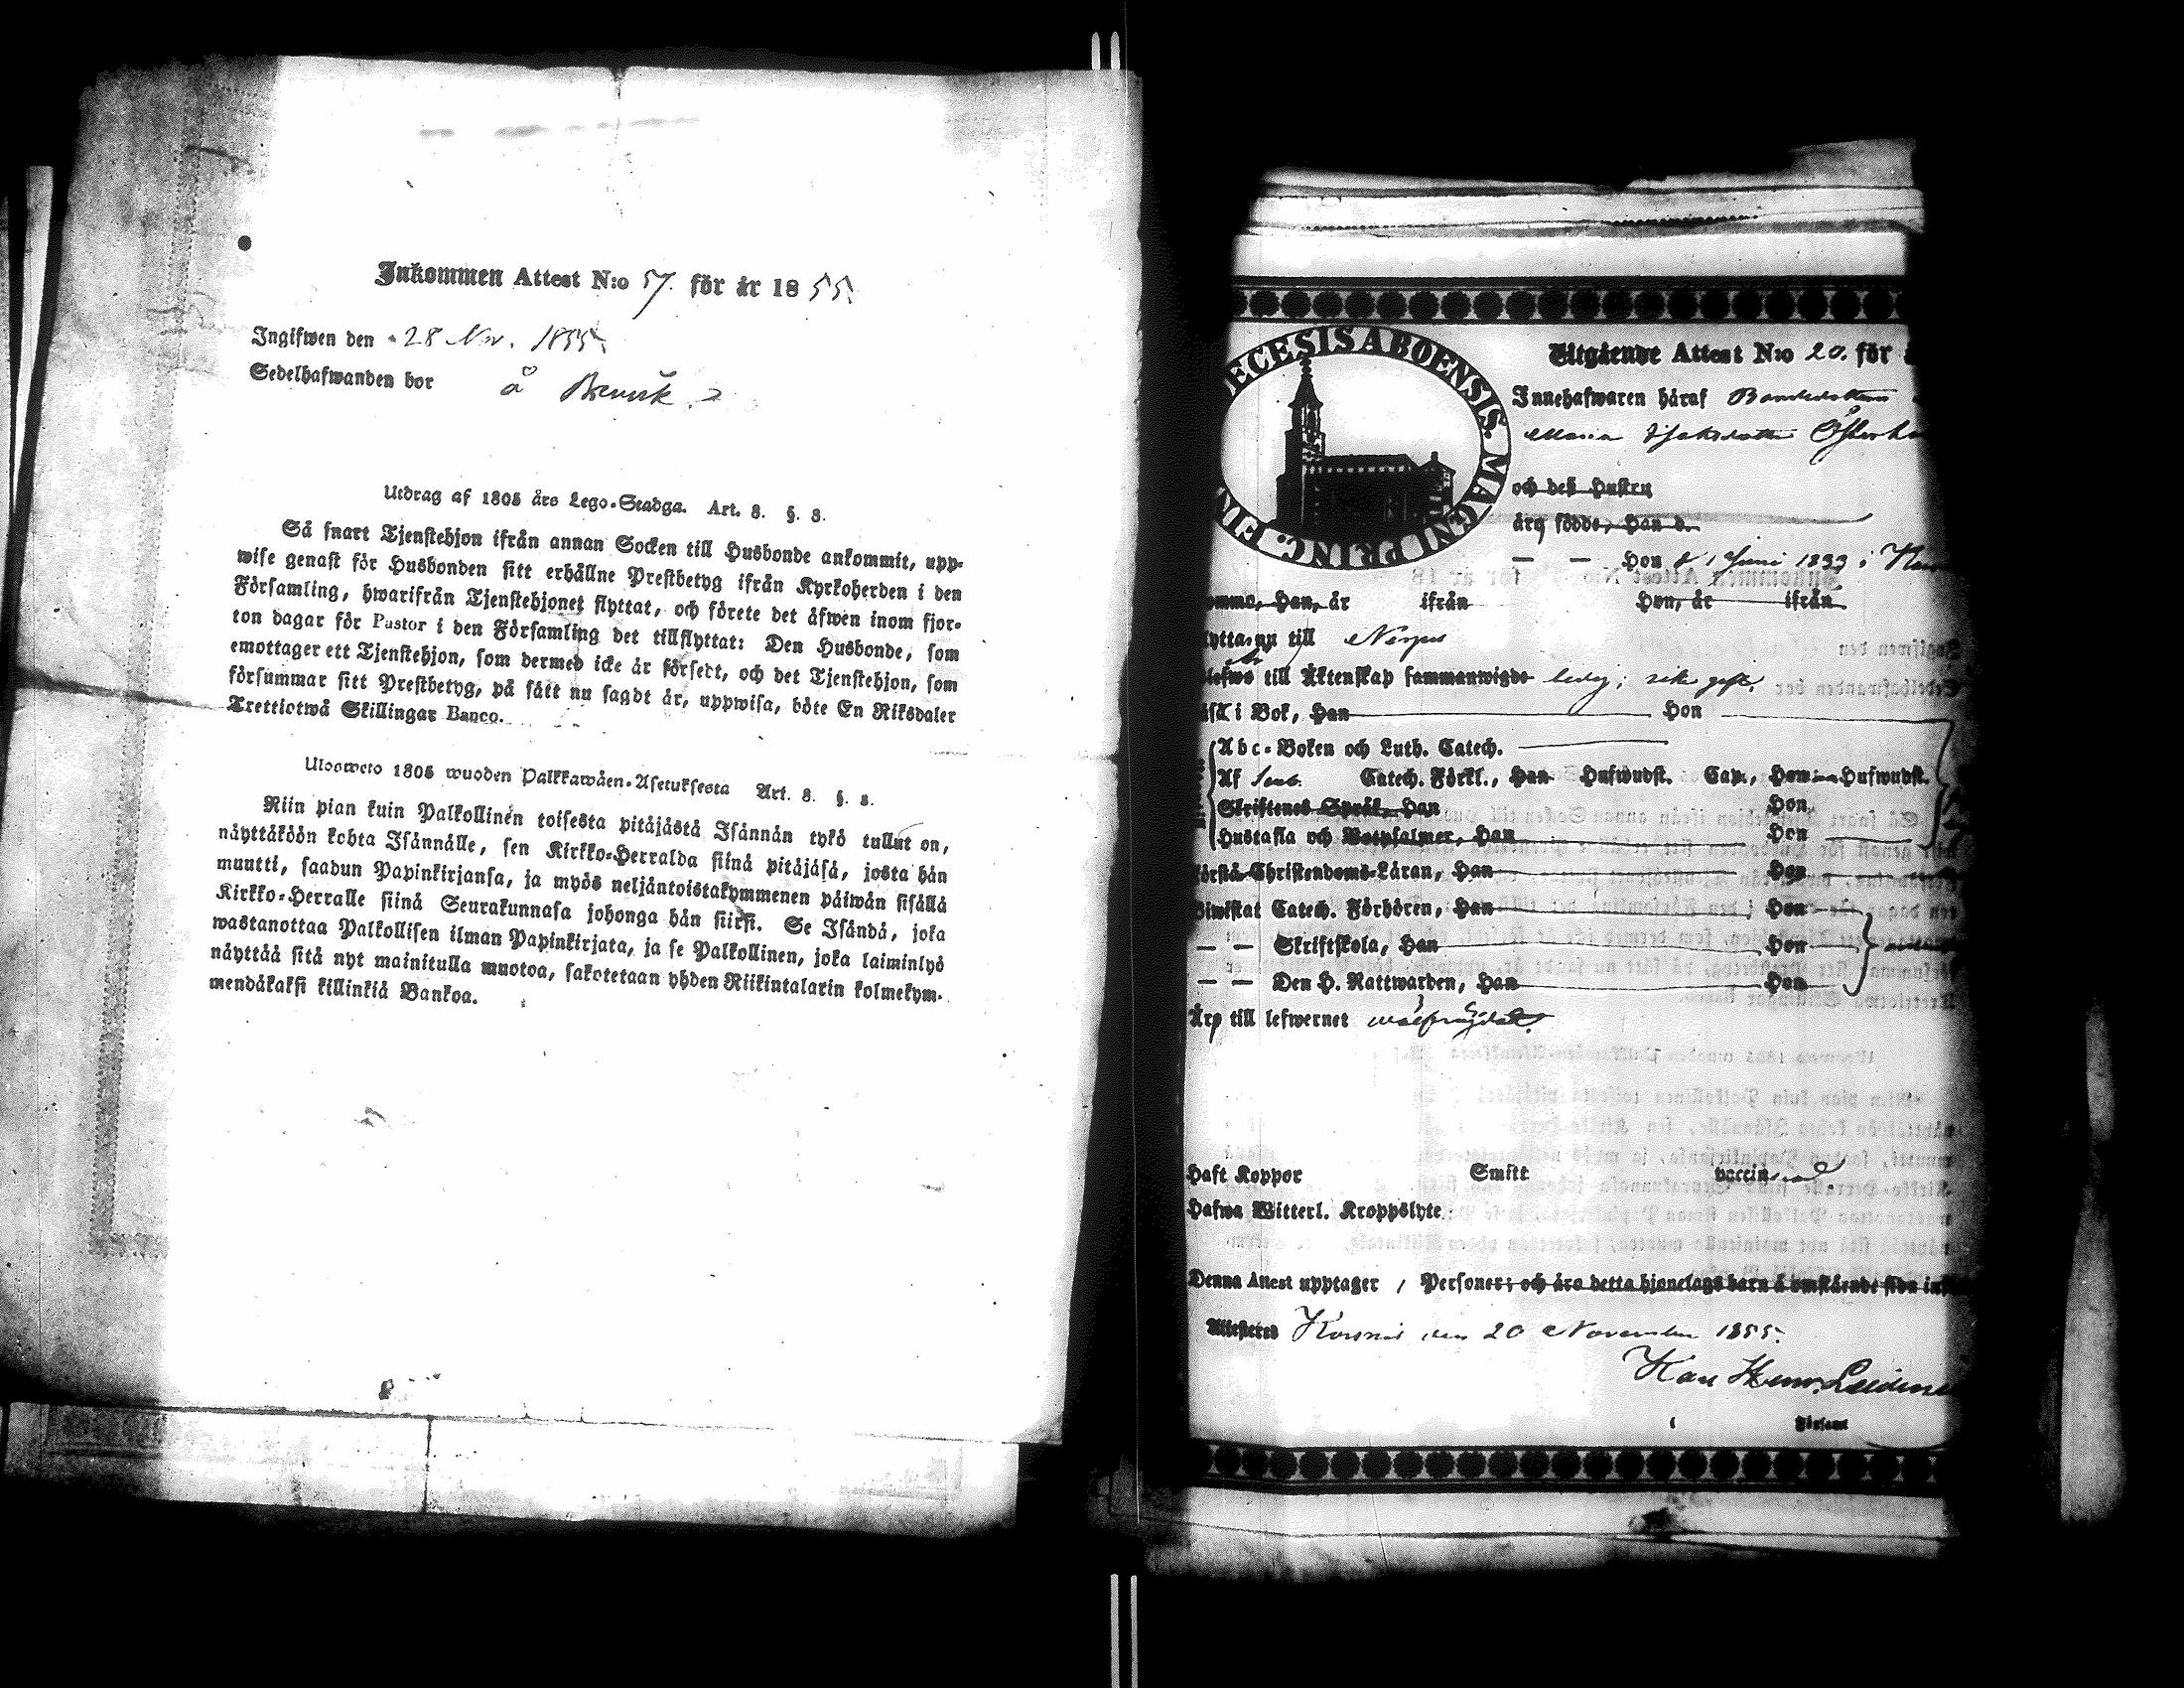 Inkommen Attest N:o 57. för år 1855.
Ingifwen den 28 Nov. 1855.
Sedelhafwanden bor å
Utdrag af 1805 års Lego-Stadga. Art. 8. §. 8.
Så snart Tjenstehjon ifrån annan Socken till Husbonde ankommit, upp-
wise genast för Husbonden sitt erhållne Prestbetyg ifrån Kyrkoherden i den
Församling, hwarifrån Tjenstehjonet flyttat, och förete det äfwen inom fjor-
ton dagar för Pastor i den Församling det tillflyttat: Den Husbonde, som
emottager ett Tjenstehjon, som dermed icke är försedt, och det Tjenstehjon, som
försummar sitt Prestbetyg, på sätt nu sagdt är, uppwisa, böte En Riksdaler
Trettiotwå Skillingar Banco.
Uloswето 1805 wuoden Palkkawäen-Asetuksesta Art. 8. §. 8.
Niin pian kuin Palkollinen toisesta pitäjästä Isännän tykö tullut on,
näyttäköön kohta Isännälle, sen Kirkko-Herralda siinä pitäjäsä, josta hän
muutti, saadun Papinkirjansa, ja myös neljäntoistakymmenen päiwän sisällä
Kirkko-Herralle siinä Seurakunnasa johonga hän siirsi. Se Isändä, joka
wastanottaa Palkollisen ilman Papinkirjata, ja se Palkollinen, joka laiminlyö
näyttää sitä nyt mainitulla muotoa, sakotetaan yhden Riikintalarin kolmekym-
mendäkaksi killinkiä Bankoa.
DIECESIS ABOENSIS. MAGNI PRINC. FIN
Utgående Attest N:o 20. för
Innehafwaren häraf Bondedottern
Maria
och dess Hustru
äro födde, Han d.
— — Hon d 1 Juni 1833 i
komme, Han, år ifrån Hon, år ifrån
flytta nu till Nerpes
till Äktenskap sammanwigde ledig, icke gift.
i Bok, Han Hon
Abc-Boken och Luth. Catech.
Af Catech. Förkl., Han Hufwudst. Cap., Hon Hufwudst.
Skriftenes Språk, Han Hon
Hustafla och Botpsalmer, Han Hon
Förstå Christendoms-Läran, Han Hon
Biwistat Catech. Förhören, Han Hon
— — Skriftskola, Han Hon
— — Den H. Nattwarden, Han Hon
Äro till lefwernet wälfrägdad.
Haft Koppor Smitt vaccinerad.
Hafwa Witterl. Kroppslyte
Denna Attest upptager 1 Personer; och äro detta hjonelags barn å omstående sida
Attesteras Korsnäs den 20 November 1855.
Karl Henr.
i Församl